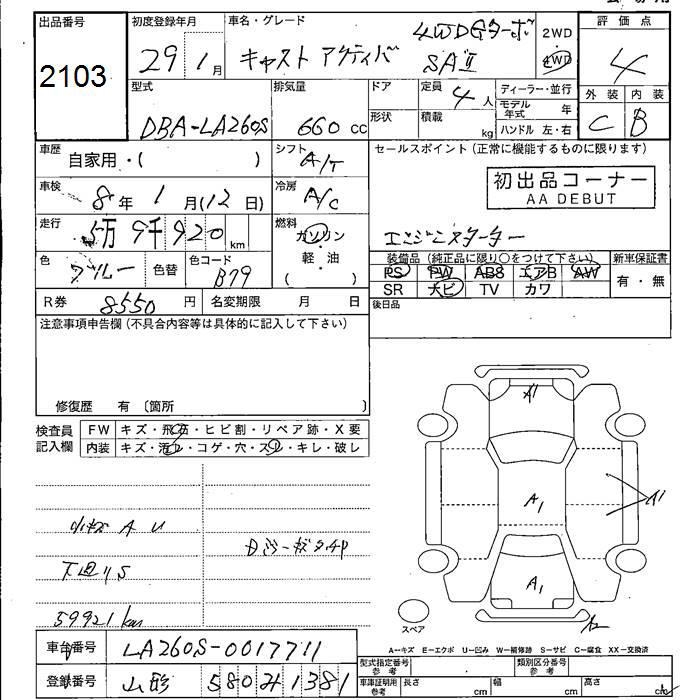 出品番号 初度登録年月 車名・グレード 評価点
2103 29年1月 キャスト アクティバ 4WD Gターボ SAⅡ 2WD 4WD 4
型式 排気量 ドア 定員 4人 ディーラー・並行 外装 内装
DBA-LA260S 660 cc 形状 積載 kg モデル年式 年 C B
ハンドル 左・右
車歴 自家用・( ) シフト A/T セールスポイント (正常に機能するものに限ります)
車検 8年 1月(12日) 冷房 A/C 初出品コーナー
AA DEBUT
走行 5万9千920km 燃料 ガソリン エンジンスターター
軽・油
( )
色 ブルー 色替 色コード B79 装備品 (純正品に限り○をつけて下さい) 新車保証書
PS PW ABS エアB AW 有・無
SR ナビ TV カワ
R券 8550円 名変期限 月 日 後日品
注意事項申告欄 (不具合内容等は具体的に記入して下さい)
修復歴 有 〔箇所 〕
検査員記入欄 FW キズ・飛石・ヒビ割・リペア跡・X要
内装 キズ・汚レ・コゲ・穴・スレ・キレ・破レ
A1
A1
A1
A1
A2
小キズ A U
下廻りS
59921km
スペア
A−キズ E−エクボ U−凹み W−補修跡 S−サビ C−腐食 XX−交換済
車台番号 LA260S-0017711
登録番号 山形 580 1381
型式指定番号 参考 類別区分番号 参考
車庫証明用 参考 長さ cm 幅 cm 高さ cm